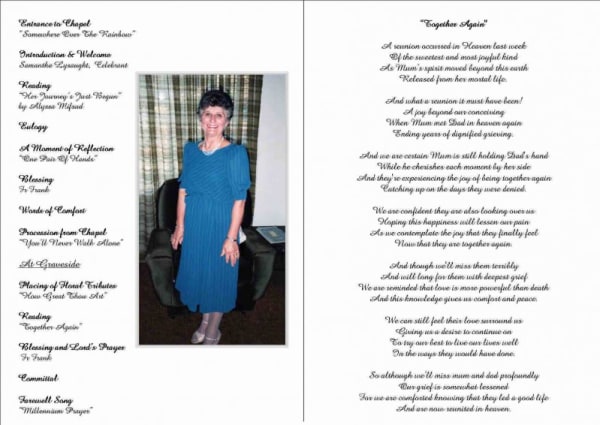 Entrance to Chapel
"Somewhere Over The Rainbow"
Introduction & Welcome
Samantha Lysaught, Celebrant
Reading
"Her Journey's Just Begun"
by Alyssa Mifsud
Eulogy
A Moment of Reflection
"One Pair Of Hands"
Blessing
Fr Frank
Words of Comfort
Procession from Chapel
"You'll Never Walk Alone"
At Graveside
Placing of Floral Tributes
"How Great Thou Art"
Reading
"Together Again"
Blessing and Lord's Prayer
Fr Frank
Committal
Farewell Song
"Millennium Prayer"
"Together Again"
A reunion occurred in Heaven last week
Of the sweetest and most joyful kind
As Mum's spirit moved beyond this earth
Released from her mortal life.
And what a reunion it must have been!
A joy beyond our conceiving
When Mum met Dad in heaven again
Ending years of dignified grieving.
And we are certain Mum is still holding Dad's hand
While he cherishes each moment by her side
And they're experiencing the joy of being together again
Catching up on the days they were denied.
We are confident they are also looking over us
Hoping this happiness will lessen our pain
As we contemplate the joy that they finally feel
Now that they are together again.
And though we'll miss them terribly
And will long for them with deepest grief
We are reminded that love is more powerful than death
And this knowledge gives us comfort and peace.
We can still feel their love surround us
Giving us a desire to continue on
To try our best to live our lives well
In the ways they would have done.
So although we'll miss mum and dad profoundly
Our grief is somewhat lessened
For we are comforted knowing that they led a good life
And are now reunited in heaven.